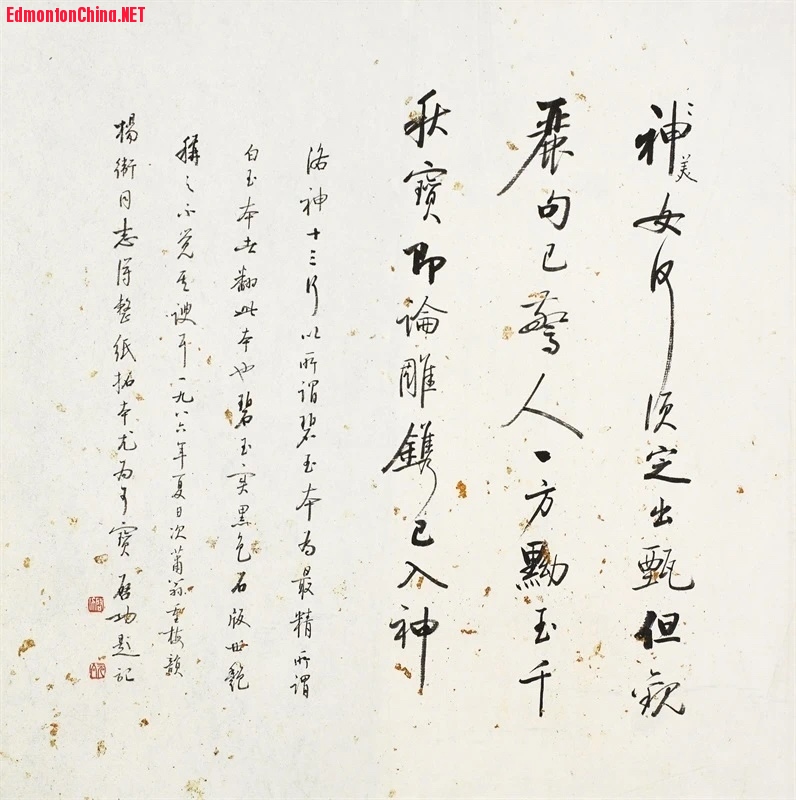 EdmontonChina.NET
神女何須定出甄但觀
美
麗句已驚人一方黝玉千
秋寶即論雕鐫已入神
洛神十三行以所謂碧玉本為最精所謂
白玉本者翻此本也碧玉实黑色石版世艷
稱之不覺其諛耳一九八六年夏日次翁韻
楊同志得整紙拓本尤為可寶启功題記